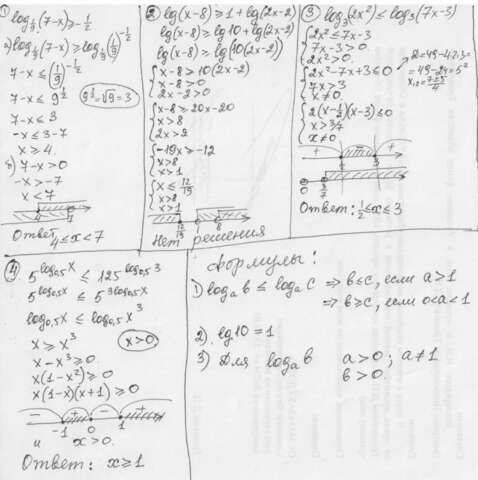 ①
log_{1/9}(7-x) ≥ -1/2
а) log_{1/9}(7-x) ≥ log_{1/9}(1/9)^{-1/2}
7-x ≤ (1/9)^{-1/2}
7-x ≤ 9^{1/2}   9^{1/2} = √9 = 3
7-x ≤ 3
-x ≤ 3-7
x ≥ 4
б) 7-x > 0
-x > -7
x < 7
4 7
Ответ 4 ≤ x < 7
②
lg(x-8) ≥ 1 + lg(2x-2)
lg(x-8) ≥ lg10 + lg(2x-2)
lg(x-8) ≥ lg(10(2x-2))
x-8 ≥ 10(2x-2)
x-8 > 0
2x-2 > 0
x-8 ≥ 20x-20
x > 8
2x > 2
-19x ≥ -12
x > 8
x > 1
x ≤ 12/19
x > 8
x > 1
12/19 1 8
Нет решения
③ log₃(2x²) ≤ log₃(7x-3)
2x² ≤ 7x-3
7x-3 > 0
2x² > 0
2x²-7x+3 ≤ 0
7x > 3
x ≠ 0
D = 49-4·2·3 =
= 49-24 = 5²
x₁,₂ = (7±5)/4
2(x-1/2)(x-3) ≤ 0
x > 3/7
x ≠ 0
+ - +
0 3/7
Ответ: 1/2 ≤ x ≤ 3
④
5^{log_{0,5}x} ≤ 125^{log_{0,5}3}
5^{log_{0,5}x} ≤ 5^{3log_{0,5}x}
log_{0,5}x ≤ log_{0,5}x³
x ≥ x³   x > 0
x - x³ ≥ 0
x(1-x²) ≥ 0
x(1-x)(x+1) ≥ 0
- + - +
-1 0 1
и x > 0.
Ответ: x ≥ 1
Формулы:
1) log_a b ≤ log_a c ⇒ b ≤ c, если a > 1
⇒ b ≥ c, если 0 < a < 1
2). lg10 = 1
3) Для log_a b a > 0; a ≠ 1
b > 0.